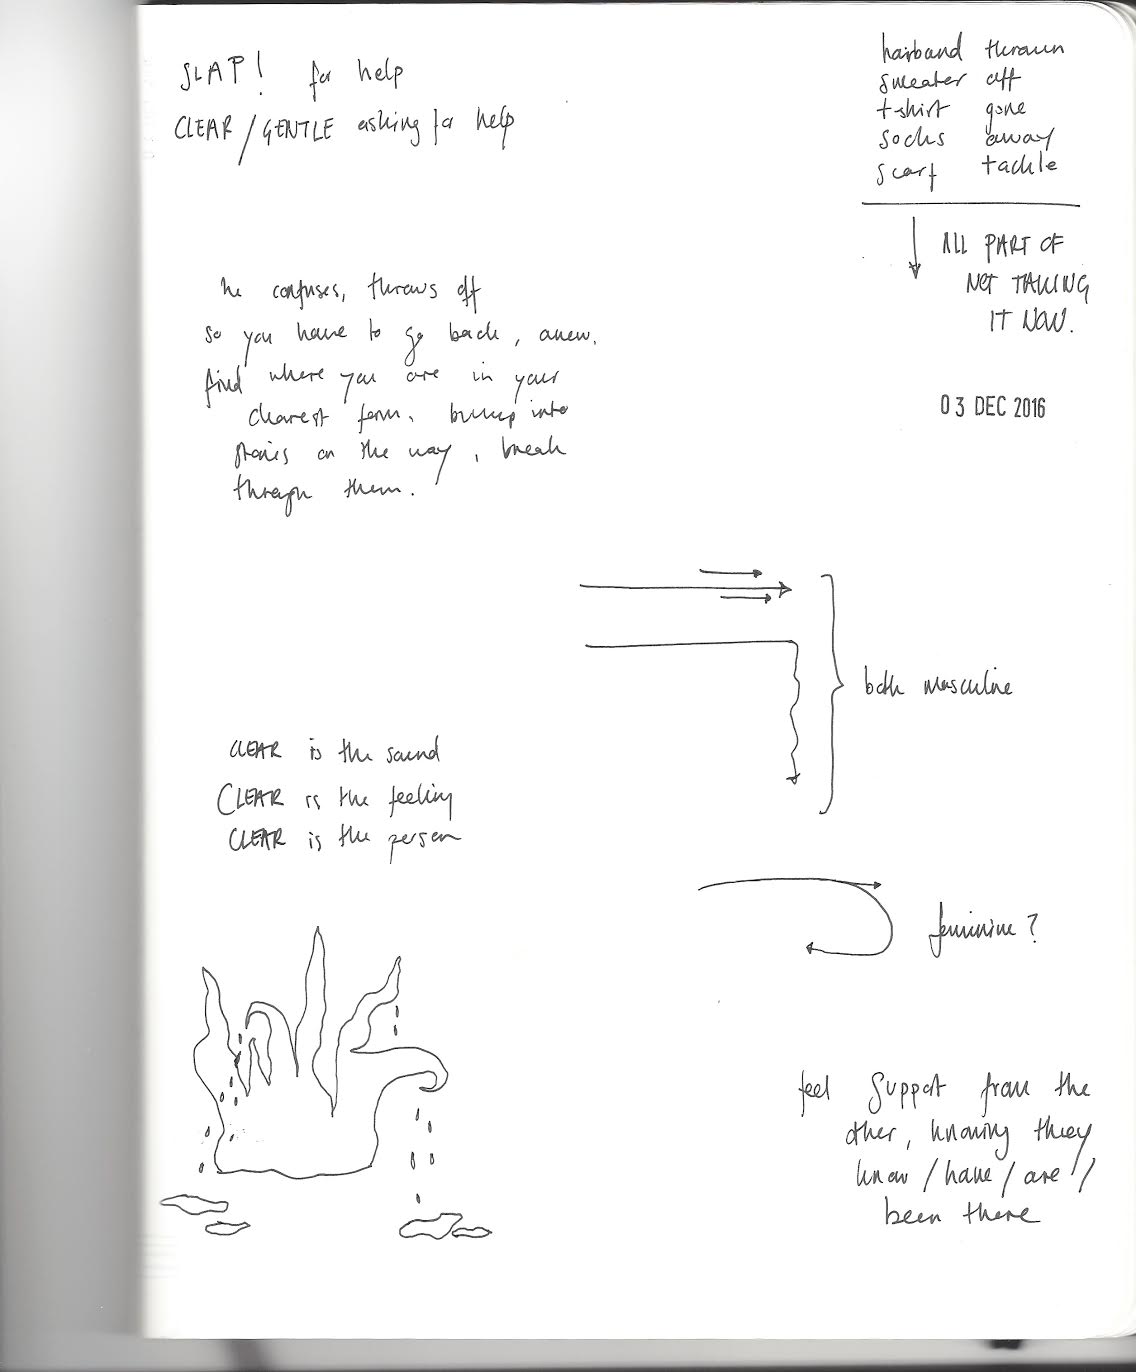 SLAP! for help
CLEAR / GENTLE asking for help
hairband thrown
sweater off
t-shirt gone
socks away
scarf tackle
ALL PART OF
NOT TAKING
IT NOW.
03 DEC 2016
he confuses, throws off
so you have to go back, anew.
find where you are in your
clearest form. bump into
on the way, break
through them.
both masculine
CLEAR is the sound
CLEAR is the feeling
CLEAR is the person
feminine?
feel support from the
other, knowing they
know / have / are /
been there